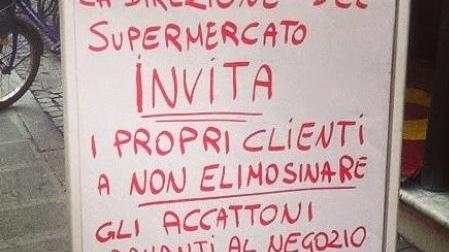 LA DIREZIONE DEL
SUPERMERCATO
INVITA
I PROPRI CLIENTI
A NON ELIMOSINARE
GLI ACCATTONI
DAVANTI AL NEGOZIO